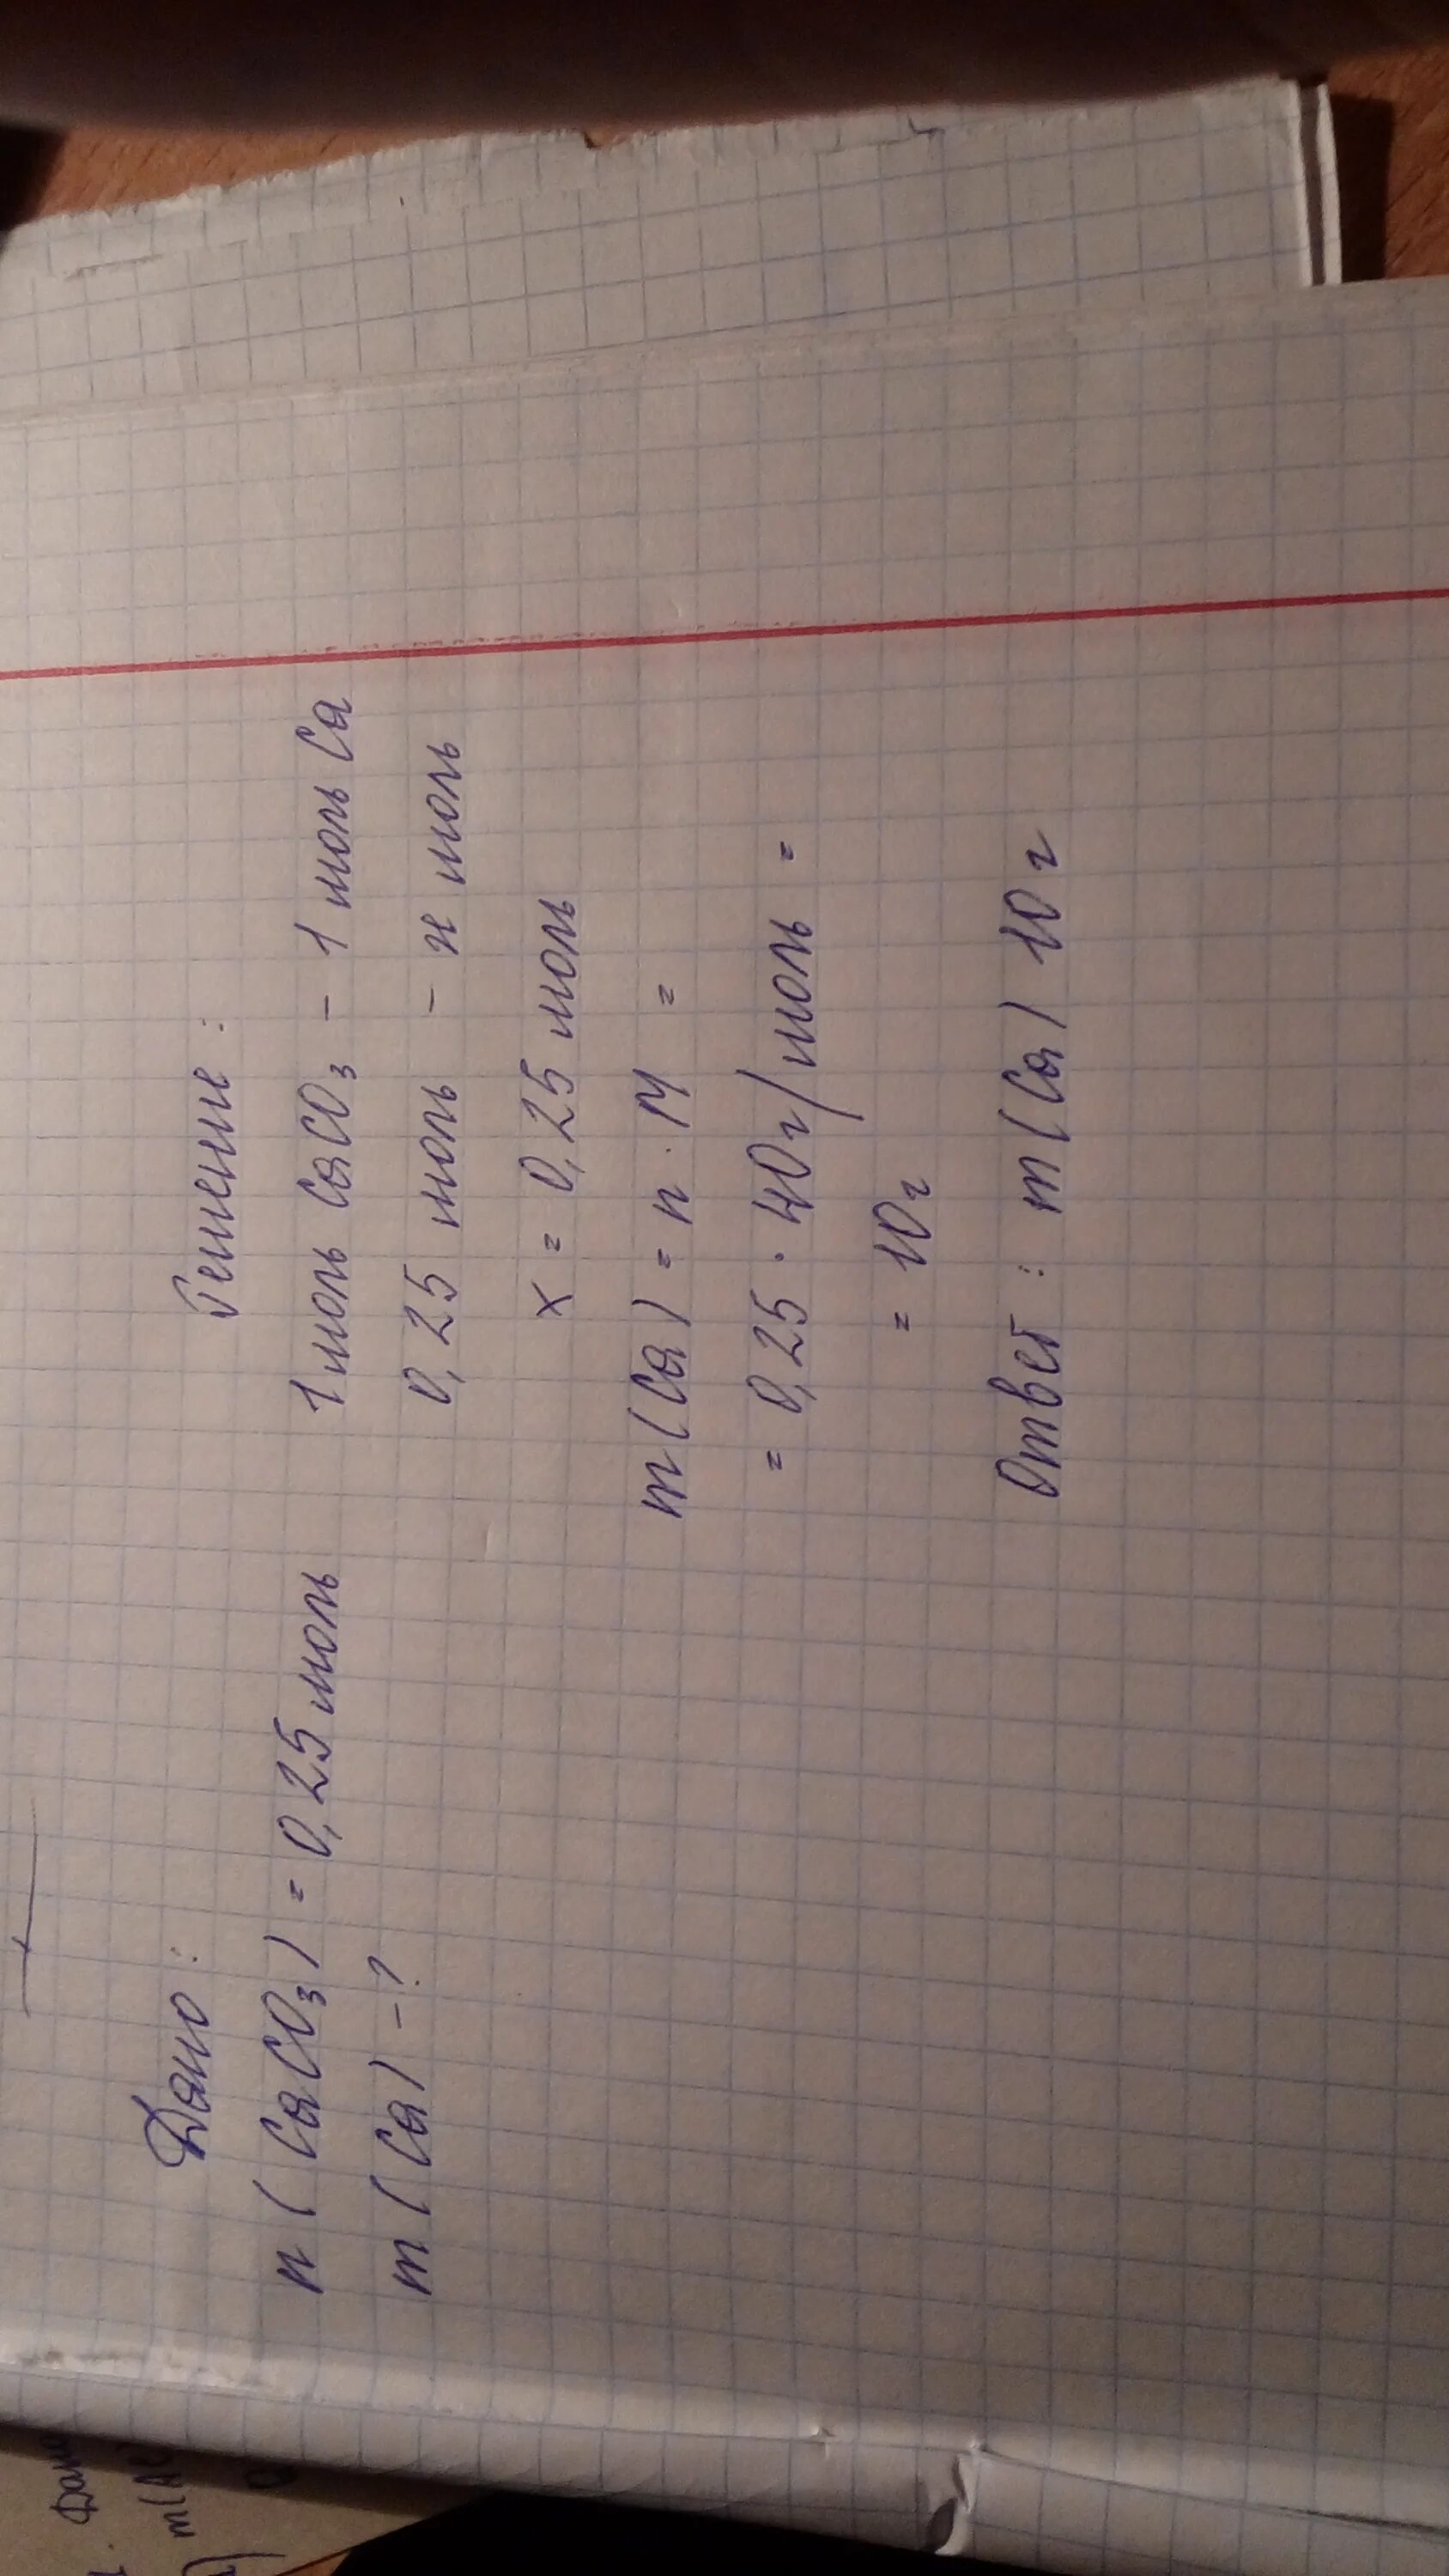 Дано:
n (CaCO3) = 0,25 моль
m (Ca) - ?
Решение:
1 моль CaCO3 - 1 моль Ca
0,25 моль - x моль
x = 0,25 моль
m (Ca) = n · M =
= 0,25 · 40 г/моль =
= 10 г
Ответ: m (Ca) 10 г
m(Al